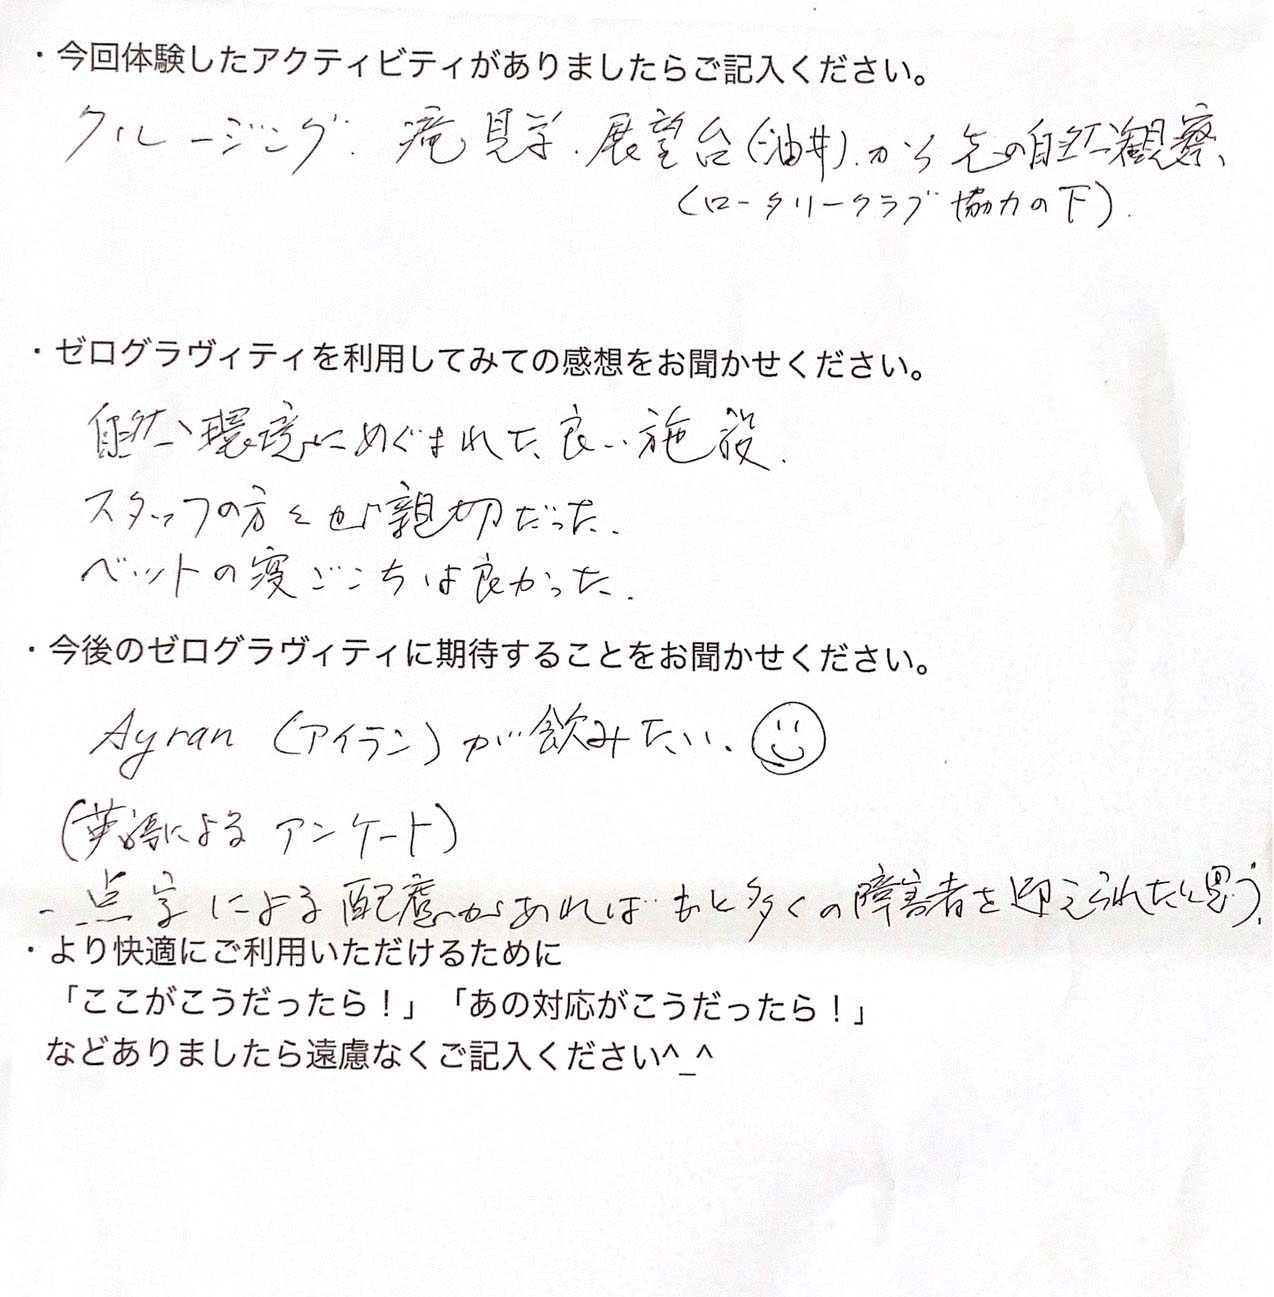 ・今回体験したアクティビティがありましたらご記入ください。
クルージング. 滝見学. 展望台(油井).から先の自然観察、
(ロータリークラブ協力の下).
・ゼログラヴィティを利用してみての感想をお聞かせください。
自然環境にめぐまれた良い施設.
スタッフの方々も親切だった.
ベットの寝ごこちは良かった.
・今後のゼログラヴィティに期待することをお聞かせください。
Ayran (アイラン)が飲みたい.
(英語によるアンケート)
- 点字による配慮があればもと多くの障害者を迎えられたと思う.
・より快適にご利用いただけるために
「ここがこうだったら！」「あの対応がこうだったら！」
などありましたら遠慮なくご記入ください^_^